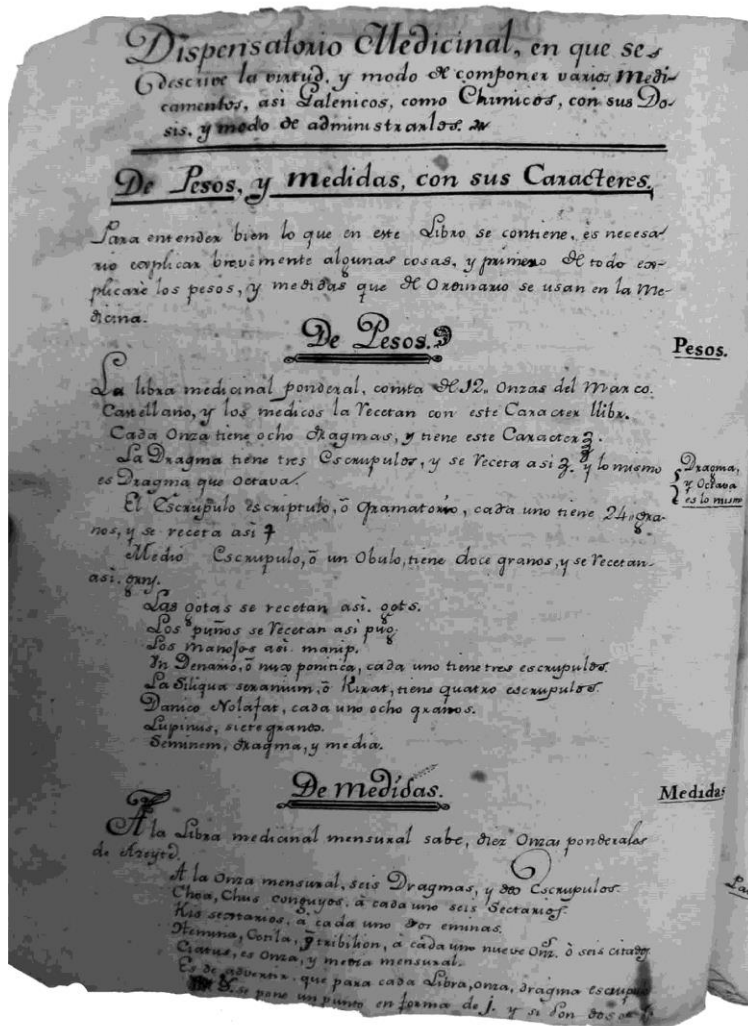 Dispensatorio Medicinal, en que se
descrive la virtud, y modo de componer varios Medi-
camentos, asi Galenicos, como Chimicos, con sus Do-
sis, y modo de administrarlos.
De Pesos, y medidas, con sus Caracteres.
Para entender bien lo que en este Libro se contiene, es necesa-
rio explicar brevemente algunas cosas, y primero de todo ex-
plicaré los pesos, y medidas que de Ordinario se usan en la Me-
dicina.
De Pesos.
Pesos.
La libra medicinal ponderal, consta de 12,, Onzas del Marco
Castellano, y los medicos la Recetan con este Caracter llibr.
Cada Onza tiene ocho dragmas, y tiene este Caracter ℥.
La Dragma tiene tres Escrupulos, y se Receta asi ʒ. y lo mismo
es Dragma que Octava.
Dragma,
y Octava
es lo mismo
El Escrupulo escriptulo, ō Gramatorio, cada uno tiene 24,, gra-
nos, y se receta asi
Medio Escrupulo, ō un Obulo, tiene doce granos, y se Recetan
asi.
Las gotas se recetan asi. gots.
Los puños se Recetan asi pug.
Los Manojos asi. manip.
In Denario, ō nux pontica, cada uno tiene tres escrupulos.
La Siliqua seranium, ō Kirat, tiene quatro escrupulos.
Danico Nolafat, cada uno ocho granos.
Lupinus, siete granos.
Seminem, dragma, y media.
De medidas.
Medidas
A la Libra medicinal mensural sabe, diez Onzas ponderales
de Azeyte.
A la Onza mensural, seis Dragmas, y dos Escrupulos.
Choa, Chus conguyos, à cada uno seis Sectarios.
Kis sextarios, à cada uno dos eminas.
Hemina, Cotila, tribilion, à cada uno nueve Onz. ò seis
Ciatus, es Onza, y media mensural.
Es de advertir, que para cada Libra, onza, dragma
se pone un punto en forma de j. y si son dos